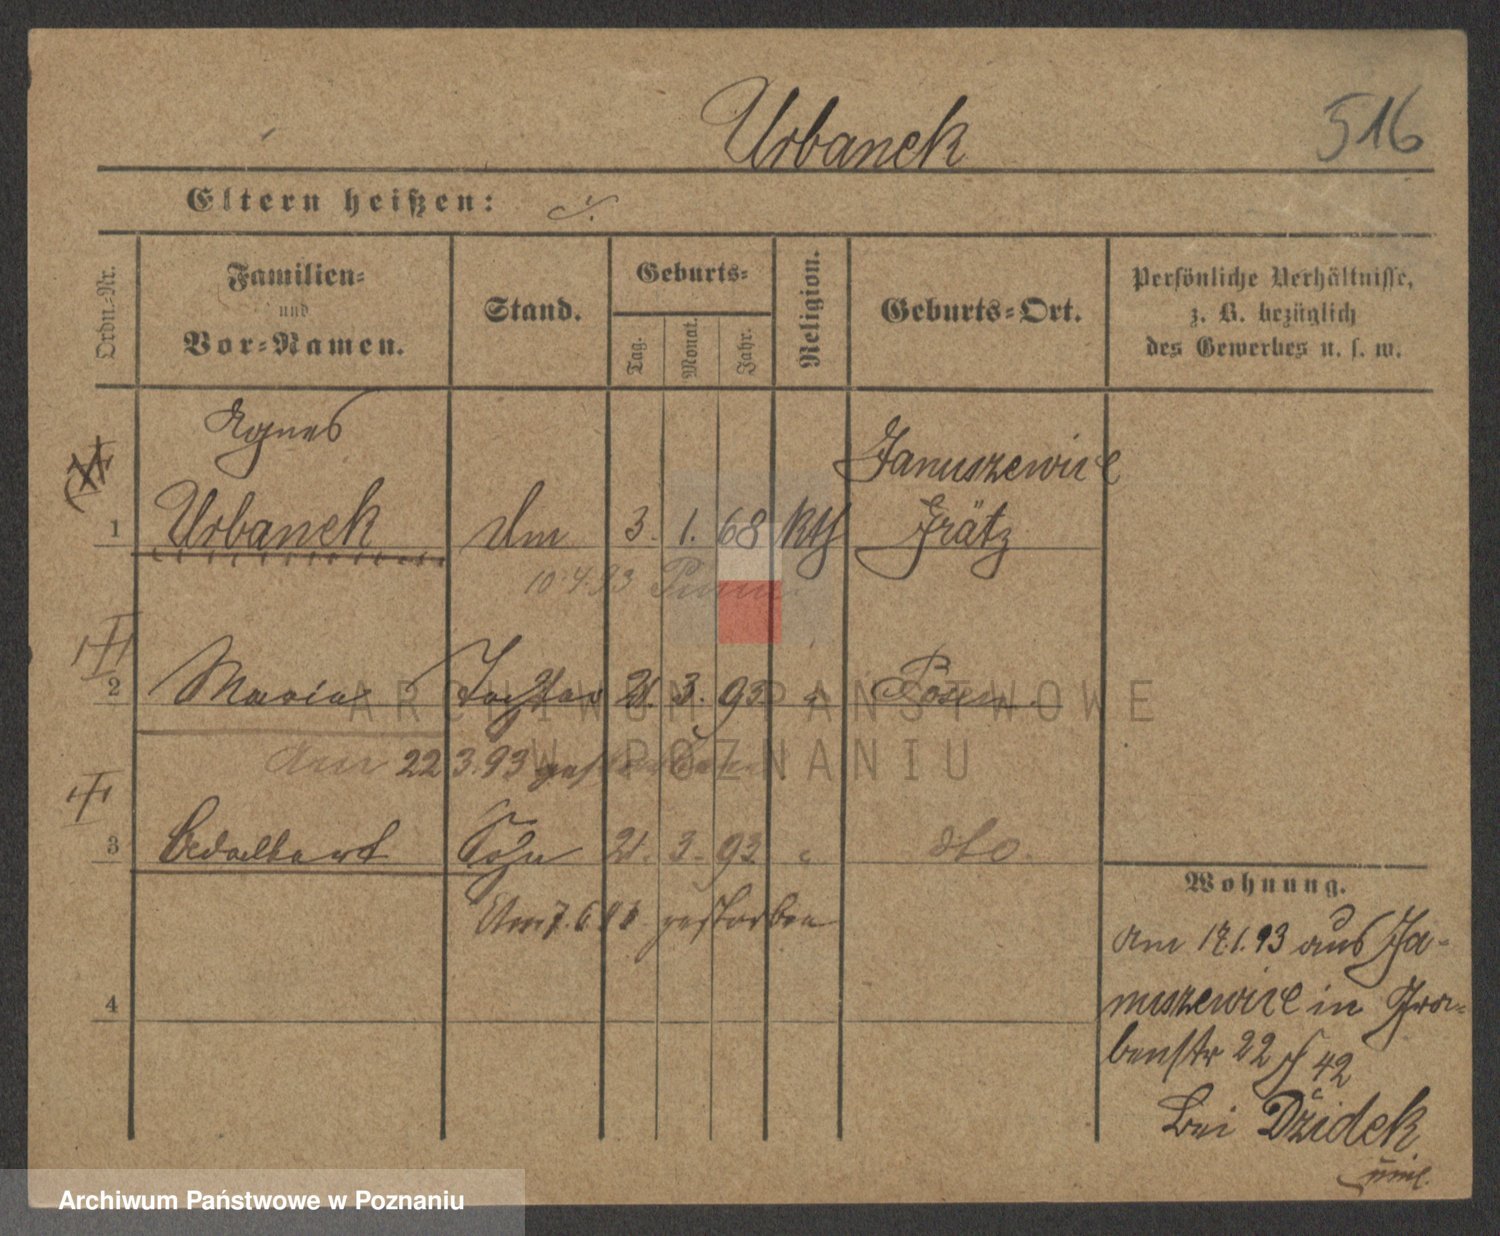 Urbanek
516
Eltern heißen: ·/.
Ordn.-Nr.
Familien-
und
Vor-Namen.
Stand.
Geburts-
Tag.
Monat.
Jahr.
Religion.
Geburts-Ort.
Persönliche Verhältnisse,
z. B. bezüglich
des Gewerbes u. s. w.
Agnes
Januszewice
1 Urbanek 3. 1. 68 Kth Grätz
10.4.93
2 Maria Tochter 21. 3. 93 " Posen.
Am 22 3.93 gestorben
3 Adalbert Sohn 21. 3. 93 " dto.
Am 7.6. gestorben
4
Wohnung.
am 17.1.93 aus Ja-
nuszewice in Gra-
benstr 22 42
bei Dzidek
ARCHIWUM PAŃSTWOWE
W POZNANIU
Archiwum Państwowe w Poznaniu